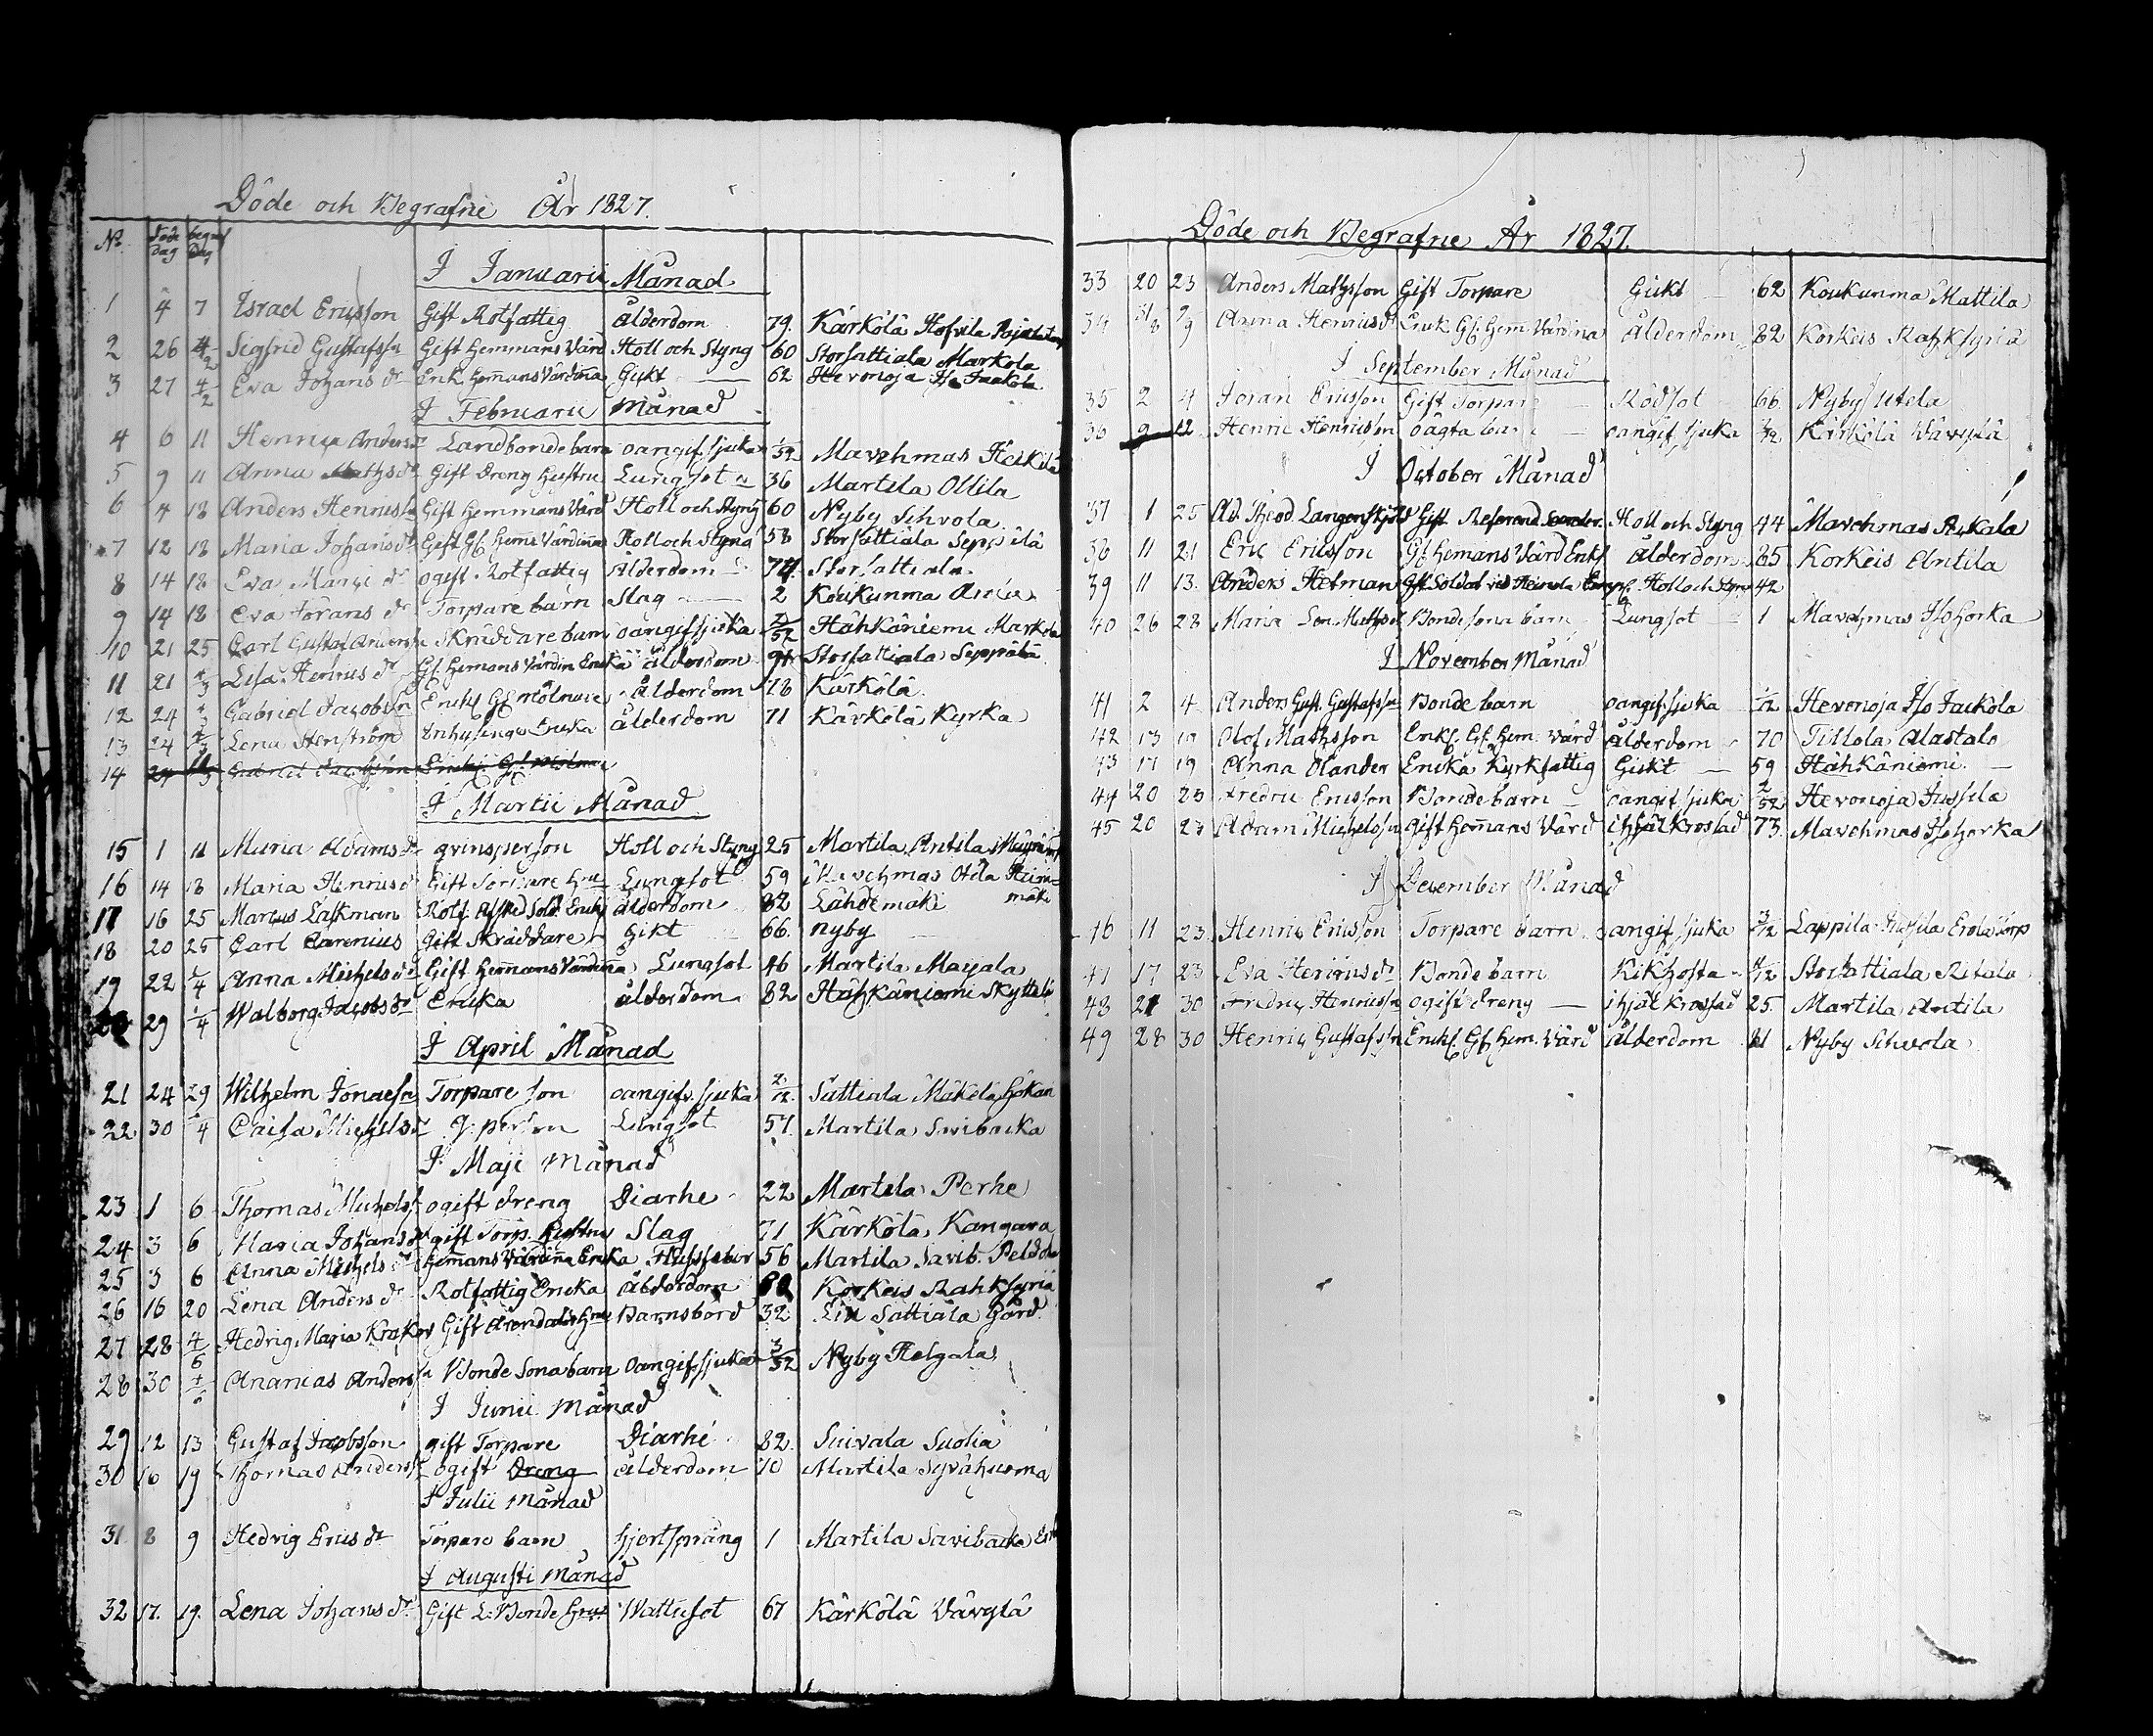 Döde och Begrafne År 1827.
No. Döde Dag begraf Dag
I Januarii Månad
1 4 7 Israel Ericsson Gift Rotfattig Ålderdom 79. Kärkölä Hofvila
2 26 4/2 Sigfrid Gustafss:n Gift Hemmans Värd Håll och Styng 60 Storsattiala Markola
3 27 4/2 Eva Johans dr Enk. Hem̅ans Värdin̅a Gikt 62 Hevonoja Iso Jaakola
I Februarii Månad
4 6 11 Henric Anders Landbonde barn oangif. sjuka 1/52 Mavehmas Heikilä
5 9 11 Anna Mathsdr Gift Dreng Hustru Lungsot 36 Martila Ollila
6 4 18 Anders Henricss:n Gift Hemmans Värd Håll och Styng 60 Nyby Schvola
7 12 18 Maria Johansdr Gift Gl. Hem̅e Värdin̅a Håll och Styng 58 Storsattiala Seppälä
8 14 18 Eva Marci dr ogift Rotfattig Ålderdom 74 Storsattiala
9 14 18 Eva Jörans dr Torpare barn Slag 2 Koukunma
10 21 25 Carl Gustaf Anderss:n Skräddare barn oangif. sjuka 2/52 Hähkäniemi Markola
11 21 4/3 Lisa Henrics dr Gl. Hemans Värdin Encka ålderdom 91 Storsattiala Seppälä
12 24 4/3 Gabriel Jacobss:n Enckl. Gl. Mölnare Ålderdom 78 Kärkölä
13 24 4/3 Lena Henström Inhysinge Encka ålderdom 71 Kärkölä Kyrka
14 24 4/3 Gabriel Jacobsson Enckl. Gl. Mölnare
I Martii Månad
15 1 11 Maria Adams dr qvinsperson Håll och Styng 25 Martila Antila
16 14 18 Maria Henrics dr Gift Torpare Hru Lungsot 59 Mavehmas Otila Heinä=
mäki
17 16 25 Marcus Laskman Rotf. Afsked Sold. Enckl. ålderdom 82 Lähdemäki
18 20 25 Carl Carenius Gift Skräddare Gikt 66. Nyby
19 22 1/4 Anna Michels dr Gift Hem̅ans Värdin̅a Lungsot 46 Martila Marjala
20 29 1/4 Walborg Jacobs dr Encka ålderdom 82 Hähkäniemi Skyttelä
I April Månad
21 24 29 Wilhelm Jonaess:n Torpare son oangif. sjuka 2/12 Sattiala Mäkelä
22 30 /4 Caisa Michels dr q. person Lungsot 57. Martila Savibacka
I Maji Månad
23 1 6 Thomas Michelss. ogift dreng Diarhe 22 Martila Perhe
24 3 6 Maria Johansdr gift Torp. Hustru Slag 71 Kärkölä Kangara
25 3 6 Anna Michels dr Hem̅ans Värdin̅a Encka 56 Martila Savib.
26 16 20 Lena Anders dr Rotfattig Encka ålderdom Korkeis Rahksyriä
27 28 4/6 Hedvig Maria Gift Hru Barnsbörd 32 Sattiala Gård.
28 30 4/6 Ananias Anderss:n Bonde Sona barn oangif. sjuka 3/52 Nyby Helgala
I Junii Månad
29 12 13 Gustaf Jacobsson gift Torpare Diarhé 82. Suivala Suolia
30 16 19 Thomas Anderss. ogift Dreng ålderdom 70 Martila
I Julii Månad
31. 8 9 Hedvig Erics dr Torpare barn hjertsprång 1 Martila Savibacka
I Augusti Månad
32 17. 19. Lena Johans dr Gift L: Bonde Hru Wattusot 67 Kärkölä Vävylä
Döde och Begrafne År 1827.
33 20 23 Anders Mathsson Gift Torpare Gickt 62 Koukunma Mattila
34 31/8 9/9 Anna Henricsdr Enck. Gl. Hem̅. Värdina Ålderdom 82 Korkeis Rahksyriä
I September Månad
35 2 4 Jöran Ericsson Gift Torpare Rödsot 66. Nyby Utela
36 9 12 Henric Henricss:n oägta barn oangif. sjuka 3/12 Kärkölä Vävylä
I October Månad
37 1 25 Ad. Theod Langenskjöld Gift Referend. Håll och Styng 44 Mavehmas
38 11 21 Eric Ericsson Gl. Hemans Värd Enkl. Ålderdom 85 Korkeis Antila
39 11 13. Anders Hetman Gift Soldat vid Heinola Håll och Styng 42
40 26 28 Maria Bondesona barn Lungsot 1 Mavehmas Isohorka
I November Månad
41 2 4 Anders Gust. Gustafss:n Bonde barn oangif. sjuka 1/12 Hevonoja Iso Jackola
42 13 19 Olof Mathsson Enkl. Gl. Hem. Värd ålderdom 70 Tillola Alastalo
43 17 19 Anna Olander Encka Kyrkfattig Gickt 59 Hähkäniemi
44 20 23 Fredric Ericsson Bonde barn oangif. sjuka 2/52 Hevonoja Jussila
45 20 23 Adam Michelss:n gift Hem̅ans Värd ihjälkrossad 73. Mavehmas Isohorka
I December Månad
46 11 23 Henric Ericsson Torpare barn oangif. sjuka 3/12 Lappila Jussila Erola Torp
47 17 23 Eva Henricsdr Bonde barn Kikhosta /12 Storsattiala Ritala
48 27 30 Fredric Henricss:n ogift dreng ihjälkrossad 25. Martila Antila
49 28 30 Henric Gustafss:n Enckl. Gl. Hem. Värd ålderdom 81 Nyby Schvola